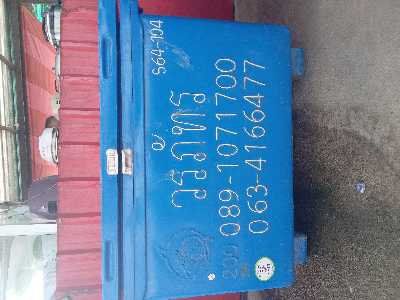 S64-104
วรภัทร
200
089-1071700
063-4166477